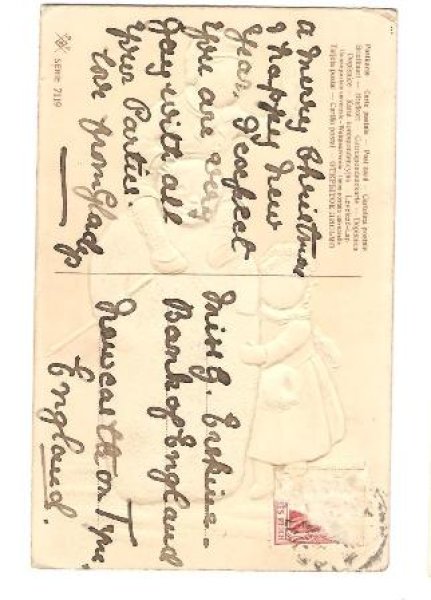 Postkarte — Carte postale — Post card — Cartolina postale
Correspondenzkarte — Dopisnica
Dopisnice — Karta korespondencyjna — Levelező-Lap
Tarjeta postal — Cartão postal — ОТКРЫТОЕ ПИСЬМО
a merry Christmas
& happy New
Year. I expect
you are very
gay with all
your Parties.
love from Gladys
SERIE 7119
Miss G. Erskine.
Bank of England
Newcastle on Tyne,
England.